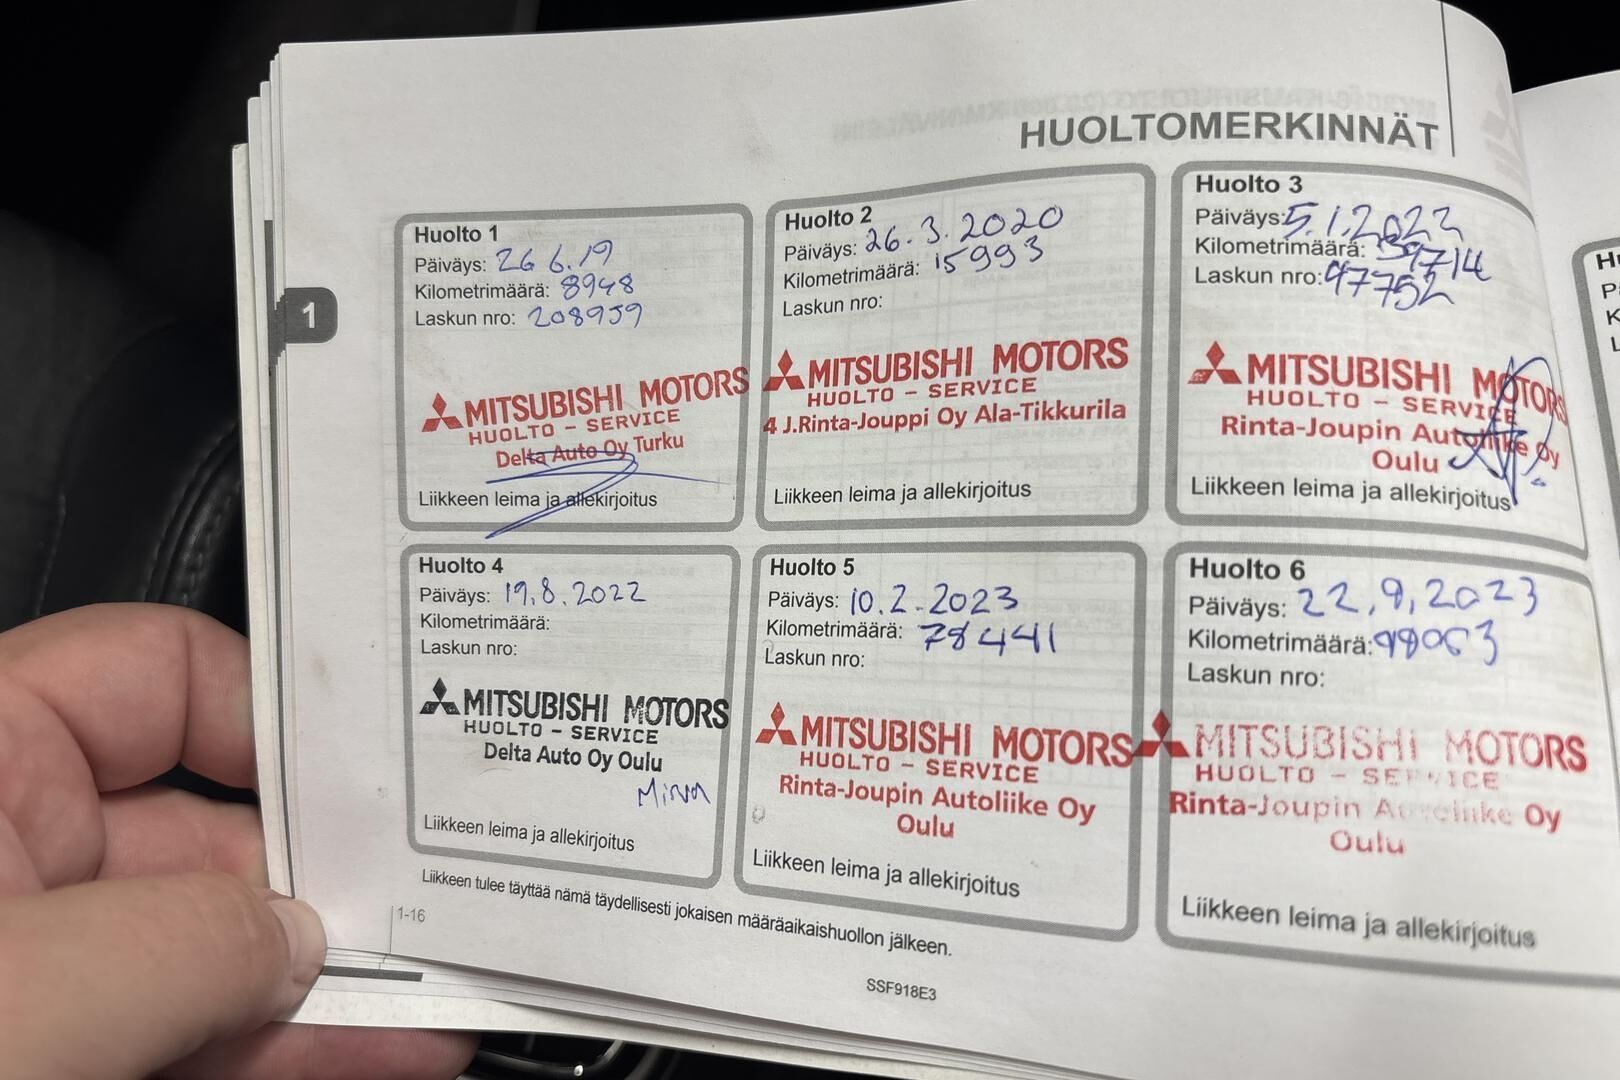 HUOLTOMERKINNÄT
1
Huolto 1
Päiväys: 26 6.19
Kilometrimäärä: 8948
Laskun nro: 208959
MITSUBISHI MOTORS
HUOLTO - SERVICE
Delta Auto Oy Turku
Liikkeen leima ja allekirjoitus
Huolto 2
Päiväys: 26.3.2020
Kilometrimäärä: 15993
Laskun nro:
MITSUBISHI MOTORS
HUOLTO - SERVICE
4 J.Rinta-Jouppi Oy Ala-Tikkurila
Liikkeen leima ja allekirjoitus
Huolto 3
Päiväys: 5.1.2022
Kilometrimäärä: 59714
Laskun nro: 97752
MITSUBISHI MOTORS
HUOLTO - SERVICE
Rinta-Joupin Autoliike Oy
Oulu
Liikkeen leima ja allekirjoitus
Huolto 4
Päiväys: 19.8.2022
Kilometrimäärä:
Laskun nro:
MITSUBISHI MOTORS
HUOLTO - SERVICE
Delta Auto Oy Oulu
Liikkeen leima ja allekirjoitus
Huolto 5
Päiväys: 10.2.2023
Kilometrimäärä: 78441
Laskun nro:
MITSUBISHI MOTORS
HUOLTO - SERVICE
Rinta-Joupin Autoliike Oy
Oulu
Liikkeen leima ja allekirjoitus
Huolto 6
Päiväys: 22.9.2023
Kilometrimäärä: 98063
Laskun nro:
MITSUBISHI MOTORS
HUOLTO - SERVICE
Rinta-Joupin Autoliike Oy
Oulu
Liikkeen leima ja allekirjoitus
Liikkeen tulee täyttää nämä täydellisesti jokaisen määräaikaishuollon jälkeen.
1-16
SSF918E3